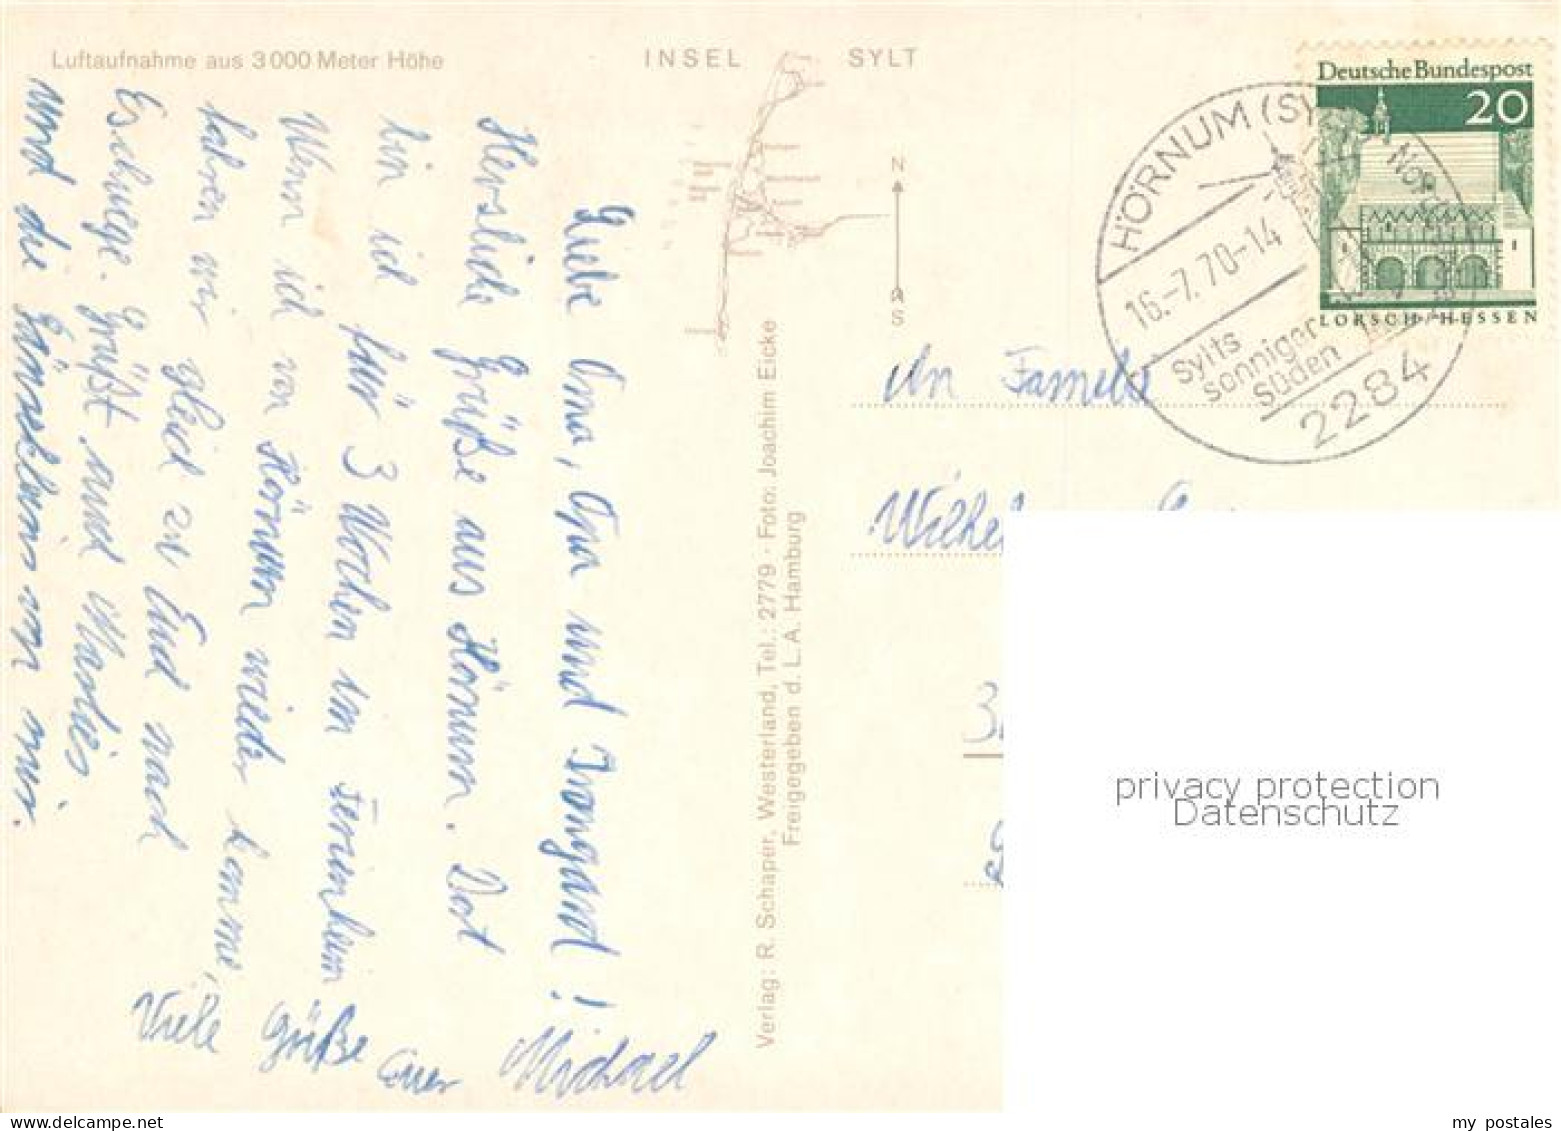 Luftaufnahme aus 3000 Meter Höhe
INSEL SYLT
N
S
Liebe Oma, Opa und Irmgard!
Herzliche Grüße aus Hörnum. Dort
bin ich für 3 Wochen im Ferienheim
Wenn ich von Hörnum wieder komme,
fahren wir gleich zu Euch nach
Eschwege. Grüßt auch Marlies
und die Gänseklein von mir.
Viele Grüße
Euer Michael
Verlag: R. Schaper, Westerland, Tel.: 2779 · Foto: Joachim Eicke
Freigegeben d. L. A. Hamburg
Deutsche Bundespost
20
LORSCH/HESSEN
HÖRNUM (SY
16.-7.70-14
Sylts
sonniger
Süden
2284
An Familie
Wilhel
3
privacy protection
Datenschutz
my postales